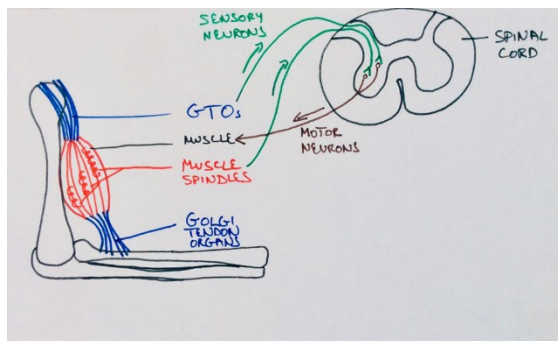 SENSORY
NEURONS
SPINAL
CORD
GTOs
MUSCLE
MOTOR
NEURONS
MUSCLE
SPINDLES
GOLGI
TENDON
ORGANS